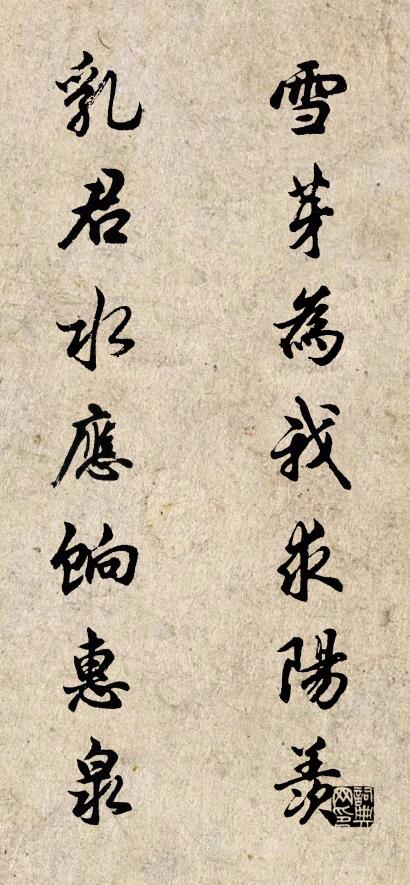 雪芽為我求陽羨
乳君水應餉惠泉
詞典
网印